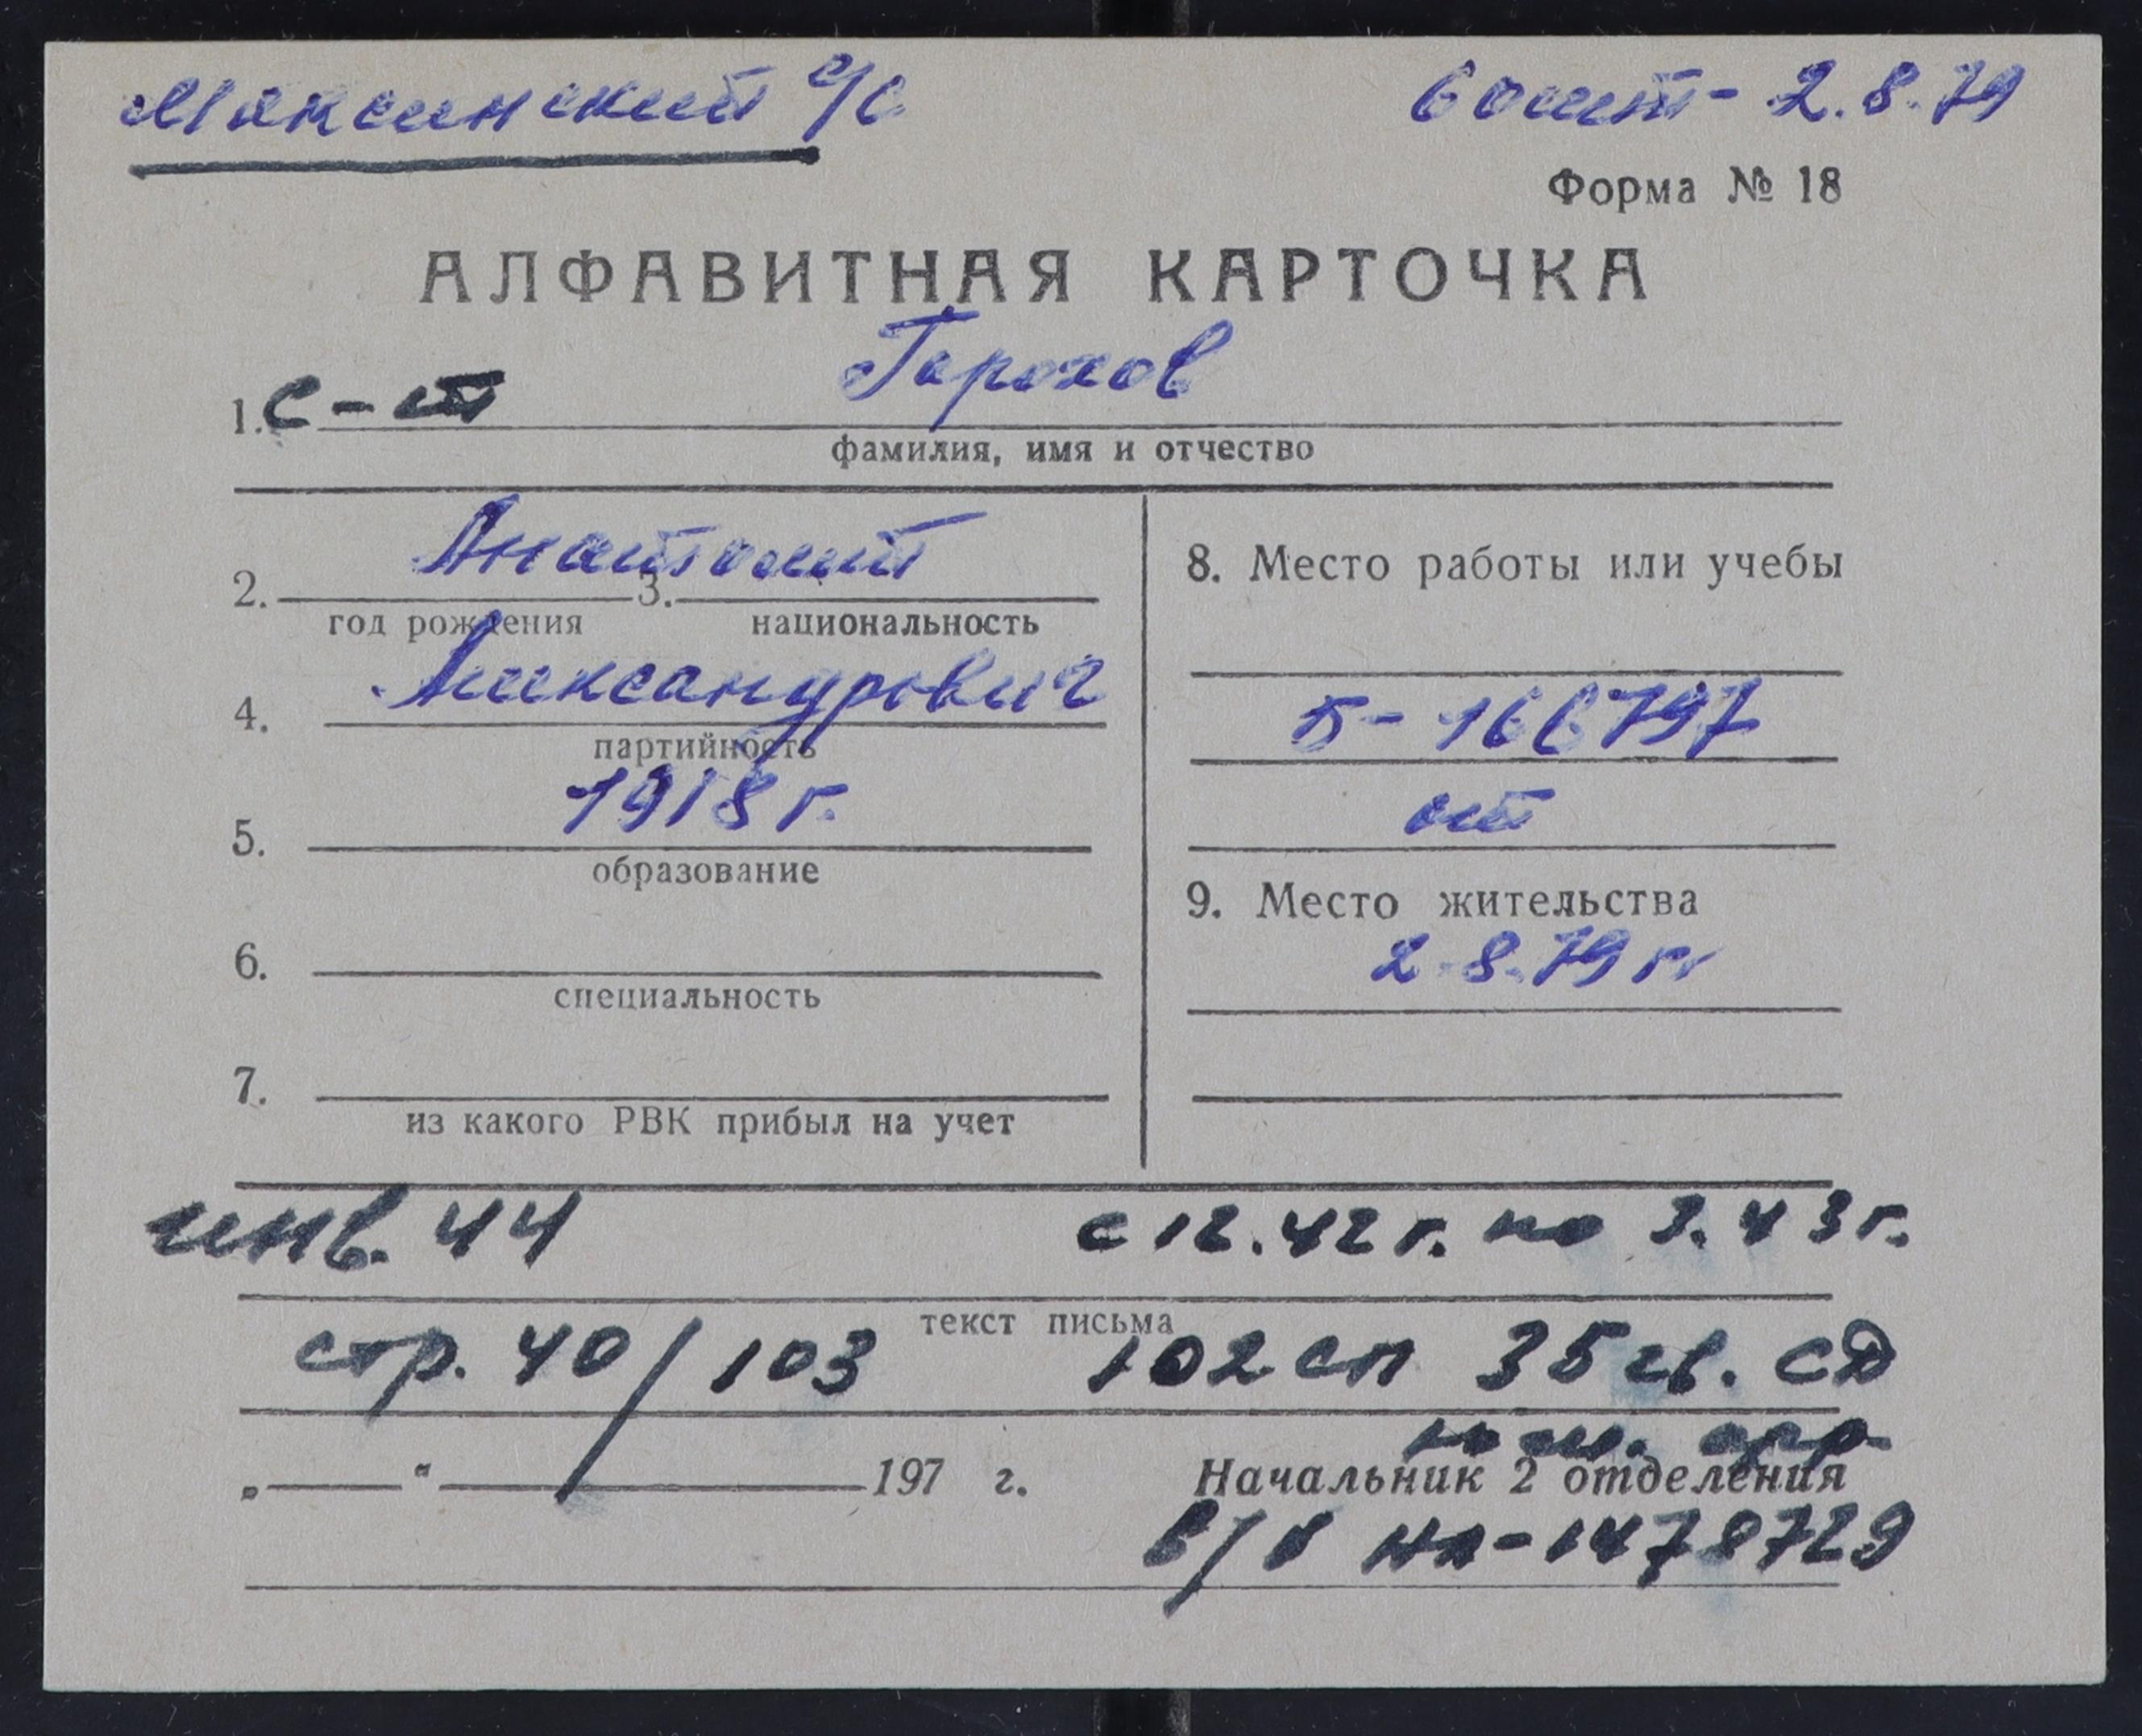 Максинский с/с
болт - 2.8.79
Форма № 18
АЛФАВИТНАЯ КАРТОЧКА
1. с-т Горохов
фамилия, имя и отчество
Анатолий
2. 3.
год рождения национальность
Александрович
4.
партийность
1918 г.
5.
образование
6.
специальность
7.
из какого РВК прибыл на учет
8. Место работы или учебы
Б-166797
от
9. Место жительства
2.8.79 г.
инв. 44 с 12.42 г. по 3.43 г.
текст письма
стр. 40/103 102 сп 35 гв. сд
„ “ 197 г. Начальник 2 отделения
в/б НП-1478729